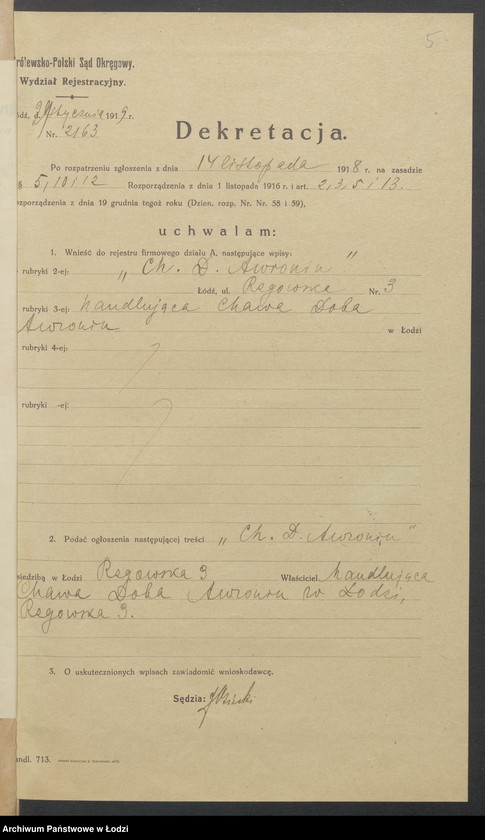 5.
rólewsko-Polski Sąd Okręgowy.
Wydział Rejestracyjny.
ódź, d. stycznia 1919 r.
Nr. 2163
Dekretacja.
Po rozpatrzeniu zgłoszenia z dnia 14 listopada 1918 r. na zasadzie
§ 5, 10 i 12 Rozporządzenia z dnia 1 listopada 1916 r. i art. 2, 3, 5 i 13.
ozporządzenia z dnia 19 grudnia tegoż roku (Dzien. rozp. Nr. Nr. 58 i 59),
uchwalam:
1. Wnieść do rejestru firmowego działu A, następujące wpisy:
rubryki 2-ej: „Ch. D. Awronin"
Łódź, ul. Rzgowska Nr. 3
rubryki 3-ej: handlująca Chawa Doba
Awronin w Łodzi
rubryki 4-ej:
rubryki -ej:
2. Podać ogłoszenia następującej treści „Ch. D. Awronin"
siedzibą w Łodzi Rzgowska 3 Właściciel handlująca
Chawa Doba Awronin w Łodzi,
Rzgowska 3.
3. O uskutecznionych wpisach zawiadomić wnioskodawcę.
Sędzia:
andl. 713.
Archiwum Państwowe w Łodzi